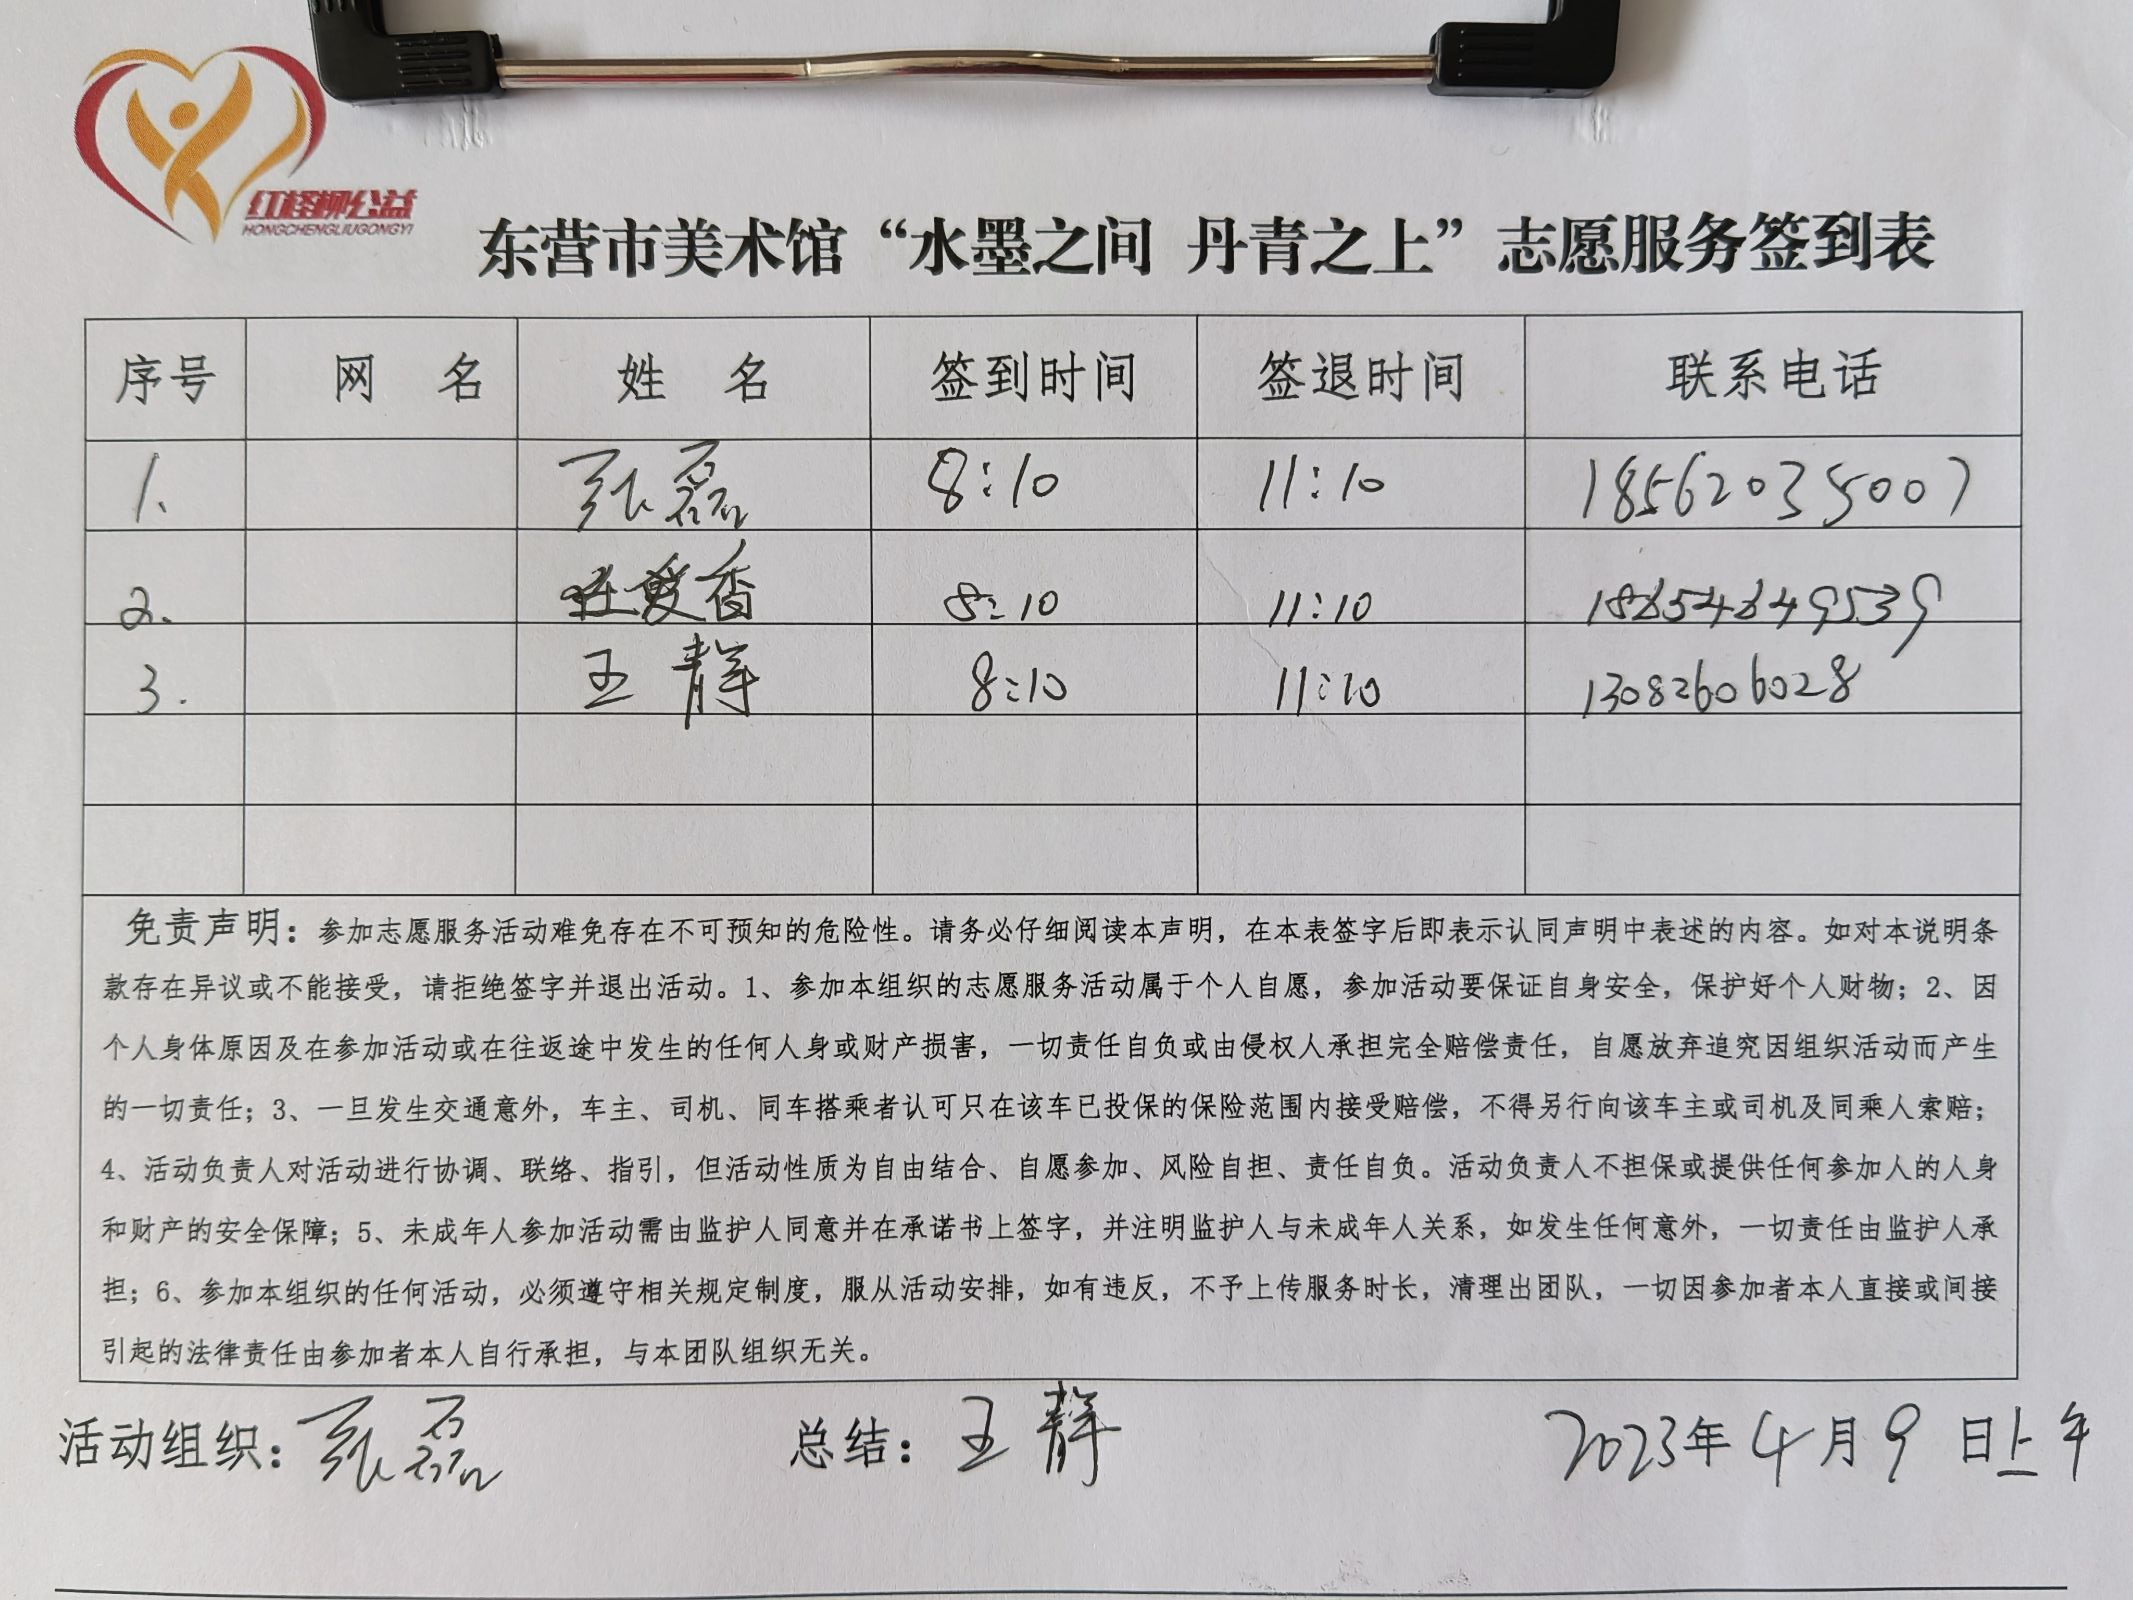 红柽柳公益
HONGCHENGLIUGONGYI
东营市美术馆“水墨之间 丹青之上”志愿服务签到表
序号 网 名 姓 名 签到时间 签退时间 联系电话
1. 张磊 8:10 11:10 18562035007
2. 香 8:10 11:10
3. 王静 8:10 11:10 13082606028
免责声明：参加志愿服务活动难免存在不可预知的危险性。请务必仔细阅读本声明，在本表签字后即表示认同声明中表述的内容。如对本说明条
款存在异议或不能接受，请拒绝签字并退出活动。1、参加本组织的志愿服务活动属于个人自愿，参加活动要保证自身安全，保护好个人财物；2、因
个人身体原因及在参加活动或在往返途中发生的任何人身或财产损害，一切责任自负或由侵权人承担完全赔偿责任，自愿放弃追究因组织活动而产生
的一切责任；3、一旦发生交通意外，车主、司机、同车搭乘者认可只在该车已投保的保险范围内接受赔偿，不得另行向该车主或司机及同乘人索赔；
4、活动负责人对活动进行协调、联络、指引，但活动性质为自由结合、自愿参加、风险自担、责任自负。活动负责人不担保或提供任何参加人的人身
和财产的安全保障；5、未成年人参加活动需由监护人同意并在承诺书上签字，并注明监护人与未成年人关系，如发生任何意外，一切责任由监护人承
担；6、参加本组织的任何活动，必须遵守相关规定制度，服从活动安排，如有违反，不予上传服务时长，清理出团队，一切因参加者本人直接或间接
引起的法律责任由参加者本人自行承担，与本团队组织无关。
活动组织：张磊 总结：王静 2023年4月9日上午